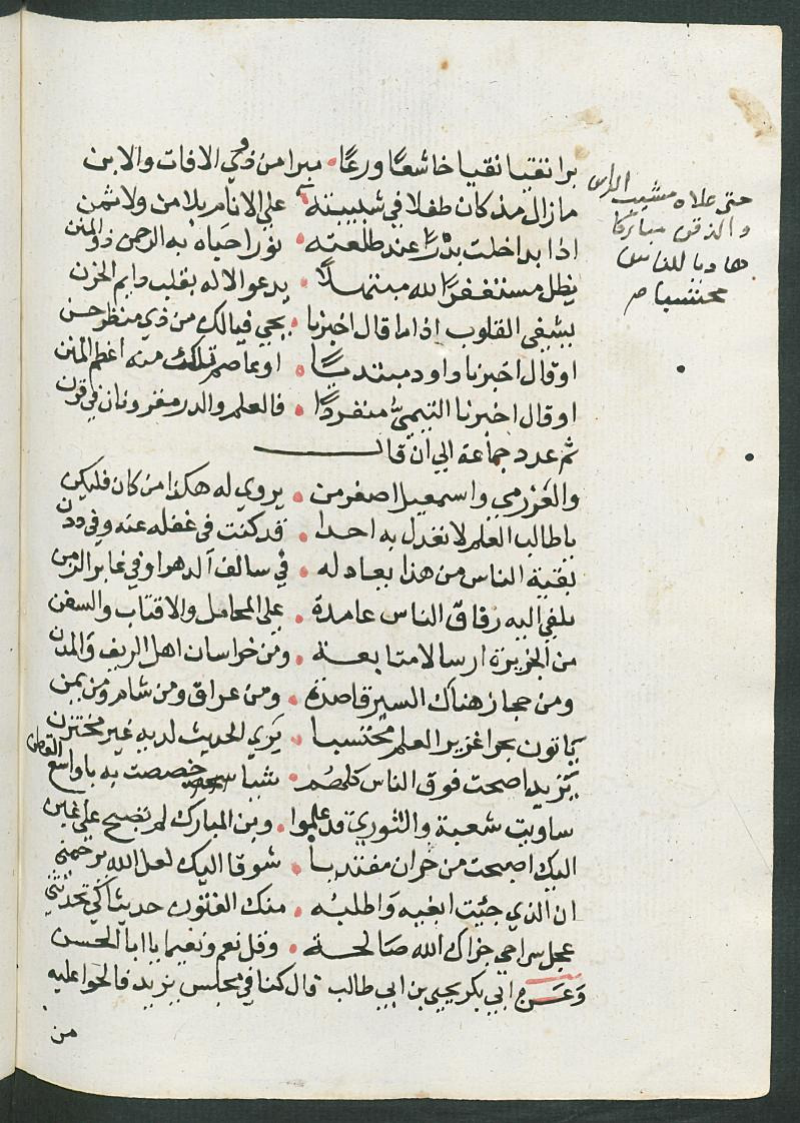 برا تقيا نقيا خاشعا ورعا • مبرا من ذوي الافات والابن
مازال مذ كان طفلا في شبيبته • علي الانام بلا من ولا ثمن
اذا بدا خلت بدرا عند طلعته • نورا حباه به الرحمن ذو المنن
يظل مستغفرا لله مبتهلا • يدعو الاله بقلب دايم الحزن
يشفي القلوب اذا ما قال اخبرنا • يحيي فيالك من ذي منظر حسن
او قال اخبرنا داود مبتديا • او عاصم تلك منه اعظم المنن
او قال اخبرنا التيمي منفردا • فالعلم والدر مقرونان في قرن
ثم عدد جماعة الي ان قال
والعرزمي واسمعيل اصغر من • يروي له هكذا من كان فليكن
يا طالب العلم لا تعدل به احدا • قد كنت في غفلة عنه وفي ددن
بقية الناس من هذا يعادله • في سالف الدهر او في غابر الزمن
يلفي اليه رفاق الناس عامدة • علي المحامل والاقتاب والسفن
من الجزيرة ارسالا متابعة • ومن خراسان اهل الريف والمدن
ومن حجاز هناك السير قاصدة • ومن عراق ومن شام ومن يمن
ياتون بحرا غزير العلم محتسبا • يري الحديث لديه غير مختزن
يزيد اصبحت فوق الناس كلهم • شيا خصصت به يا واسع الفطن
ساويت شعبة والثوري قد علموا • وبن المبارك لم تصبح علي غبن
اليك اصبحت من حران مغتربا • شوقا اليك لعل الله يرحمني
ان الذي جئت ابغيه واطلبه • منك الفنون حديثا كي تحدثني
عجل سراحي جزاك الله صالحة • وقل نعم ونعيما يا ابا الحسن
وعن ابي بكر يحيي بن ابي طالب قال كنا في مجلس يزيد فالحوا عليه
من
حتي علاه مشيب الراس
والذقن مباركا
هاديا للناس
محتسبا صح